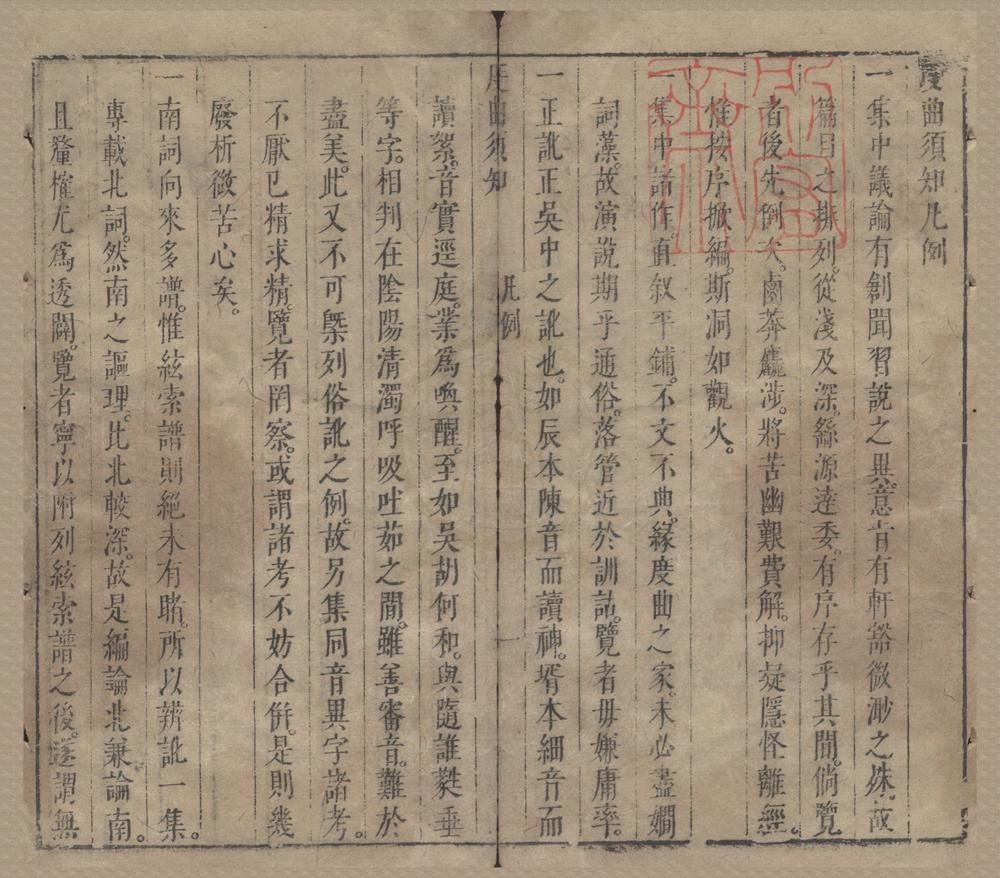 度曲須知凡例
一集中議論有創聞習說之異意旨有軒豁微渺之殊故
篇目之排列從淺及深繇源逹委有序存乎其間倘覽
者後先例次鹵莽麤涉將苦幽艱費解抑疑隱怪離經
惟按序掀編斯洞如觀火
一集中諸作直叙平鋪不文不典緣度曲之家未必盡嫺
詞藻故演說期乎通俗落管近於訓詁覽者毋嫌庸率
一正訛正吳中之訛也如辰本陳音而讀神壻本細音而
度曲須知
凡例
一
讀絮音實逕庭業爲喚醒至如吳胡何和與隨誰蕤垂
等字相判在陰陽清濁呼吸吐茹之間雖善審音難於
盡美此又不可槩列俗訛之例故另集同音異字諸考
不厭已精求精覽者罔察或謂諸考不妨合併是則幾
廢析微苦心矣
一南詞向來多譜惟絃索譜則絕未有睹所以辨訛一集
專載北詞然南之謳理比北較深故是編論北兼論南
且釐榷尤爲透闢覽者寧以附列絃索譜之後遂謂無